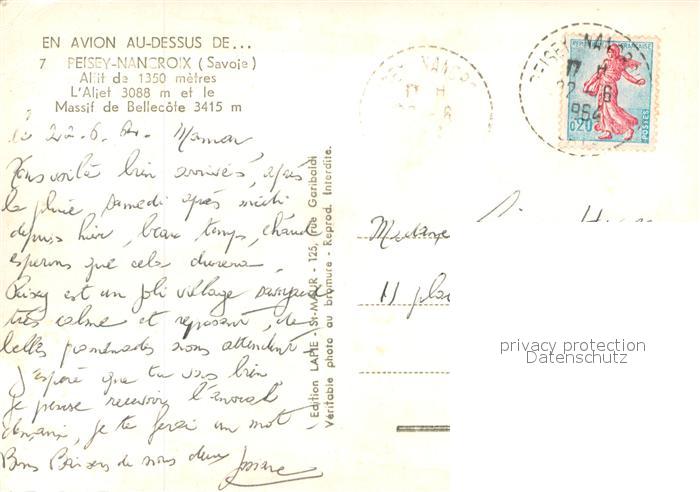 EN AVION AU-DESSUS DE...
7 PEISEY-NANCROIX (Savoie)
Altit de 1350 mètres
L'Aliet 3088 m et le
Massif de Bellecôte 3415 m
le 22.6.64. Maman
Nous voilà bien arrivés, après
la pluie samedi après midi
depuis hier, beau temps, chaud
esperons que cela durera.
Peisey est un joli village savoyard
très calme et reposant, de
belles promenades nous attendent
J'espère que tu vas bien
je pense recevoir
je te ferai un mot.
Bons Baisers de nous deux Josiane
Edition LAPIE - St-MAUR - 125, rue Garibaldi
Véritable photo au bromure - Reprod. Interdite.
PEISEY NANCROIX
17 H
22 -6
1964
RÉPUBLIQUE FRANÇAISE
0,20
POSTES
Madame
11 pla
privacy protection
Datenschutz